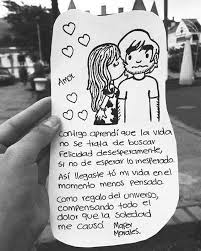 Amor
Contigo aprendí que la vida
no se trata de buscar
Felicidad desesperamente,
si no de esperar lo inesperado.
Así llegaste tú mi vida en el
momento menos pensado.
Como regalo del universo,
compensando todo el
dolor que la soledad
me causó
Mafer
Morales.